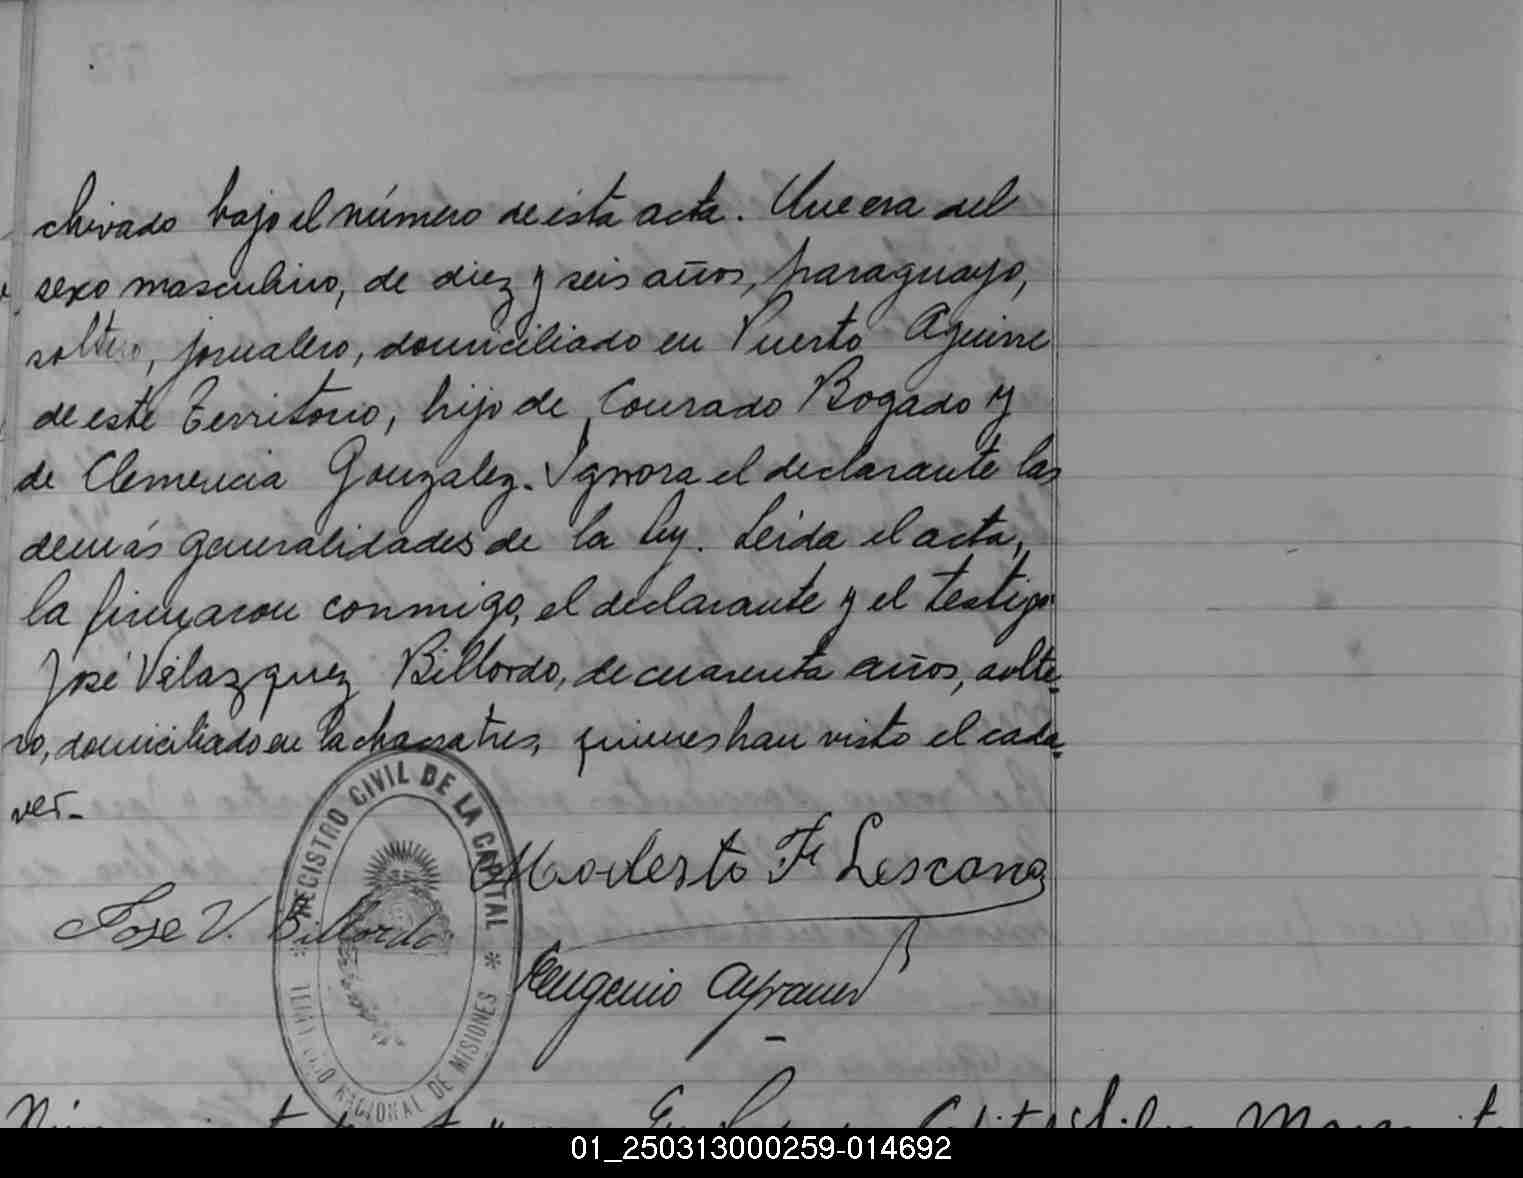 chivado bajo el número de ésta acta. Que era del
sexo masculino, de diez y seis años, paraguayo,
soltero, jornalero, domiciliado en Puerto Aguirre
de este Territorio, hijo de Conrado Bogado y
de Clemencia Gonzalez. Ignora el declarante las
demás generalidades de la ley. Leida el acta,
la firmaron conmigo, el declarante y el testigo
José Velazquez Billordo, de cuarenta años, solte-
ro, domiciliado en la chacra tres, quienes han visto el cada-
ver-
REGISTRO CIVIL DE LA CAPITAL
Modesto F. Lescano
Jose V. Billordo
Eugenio
TERRITORIO NACIONAL DE MISIONES
01_250313000259-014692